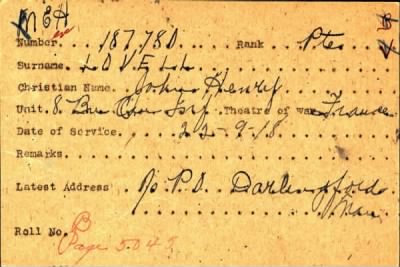 MEH
Number 187780 Rank Pte
Surname. LOVELL
Christian Name. John Henry
Unit. 8 Bn Can Inf Theatre of war France
Date of Service. 22-9-18
Remarks.
Latest Address P.O. Darlingford
Man
Roll No. Page 5043